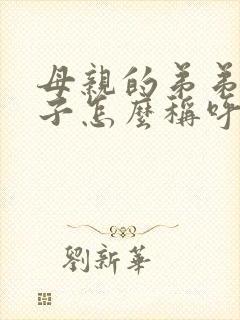 母親的弟弟
子怎麼稱呼
劉新華